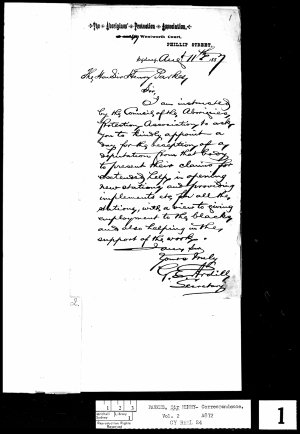 The Aborigines Protection Association.
Wentworth Court,
PHILLIP STREET,
Sydney, Aug 11th 1887
The Hon Sir Henry Parkes
Sir,
I am instructed
by the Council of the Aborigines
Protection Association to ask
you to kindly appoint a
day for the reception of a
deputation from that body
to present their claims for
extended help in opening
new stations and providing
implements etc for all the
stations, with a view to giving
employment to the blacks
and also helping in the
support of the work.
I am, Sir
Yours truly
Geo. E. Ardill
Secretary
2.
1 2 3
Mitchell Library
Sydney
Reproduction Rights
Reserved
PARKES, Sir HENRY- Correspondence,
Vol. 2 A872
CY REEL 24
1